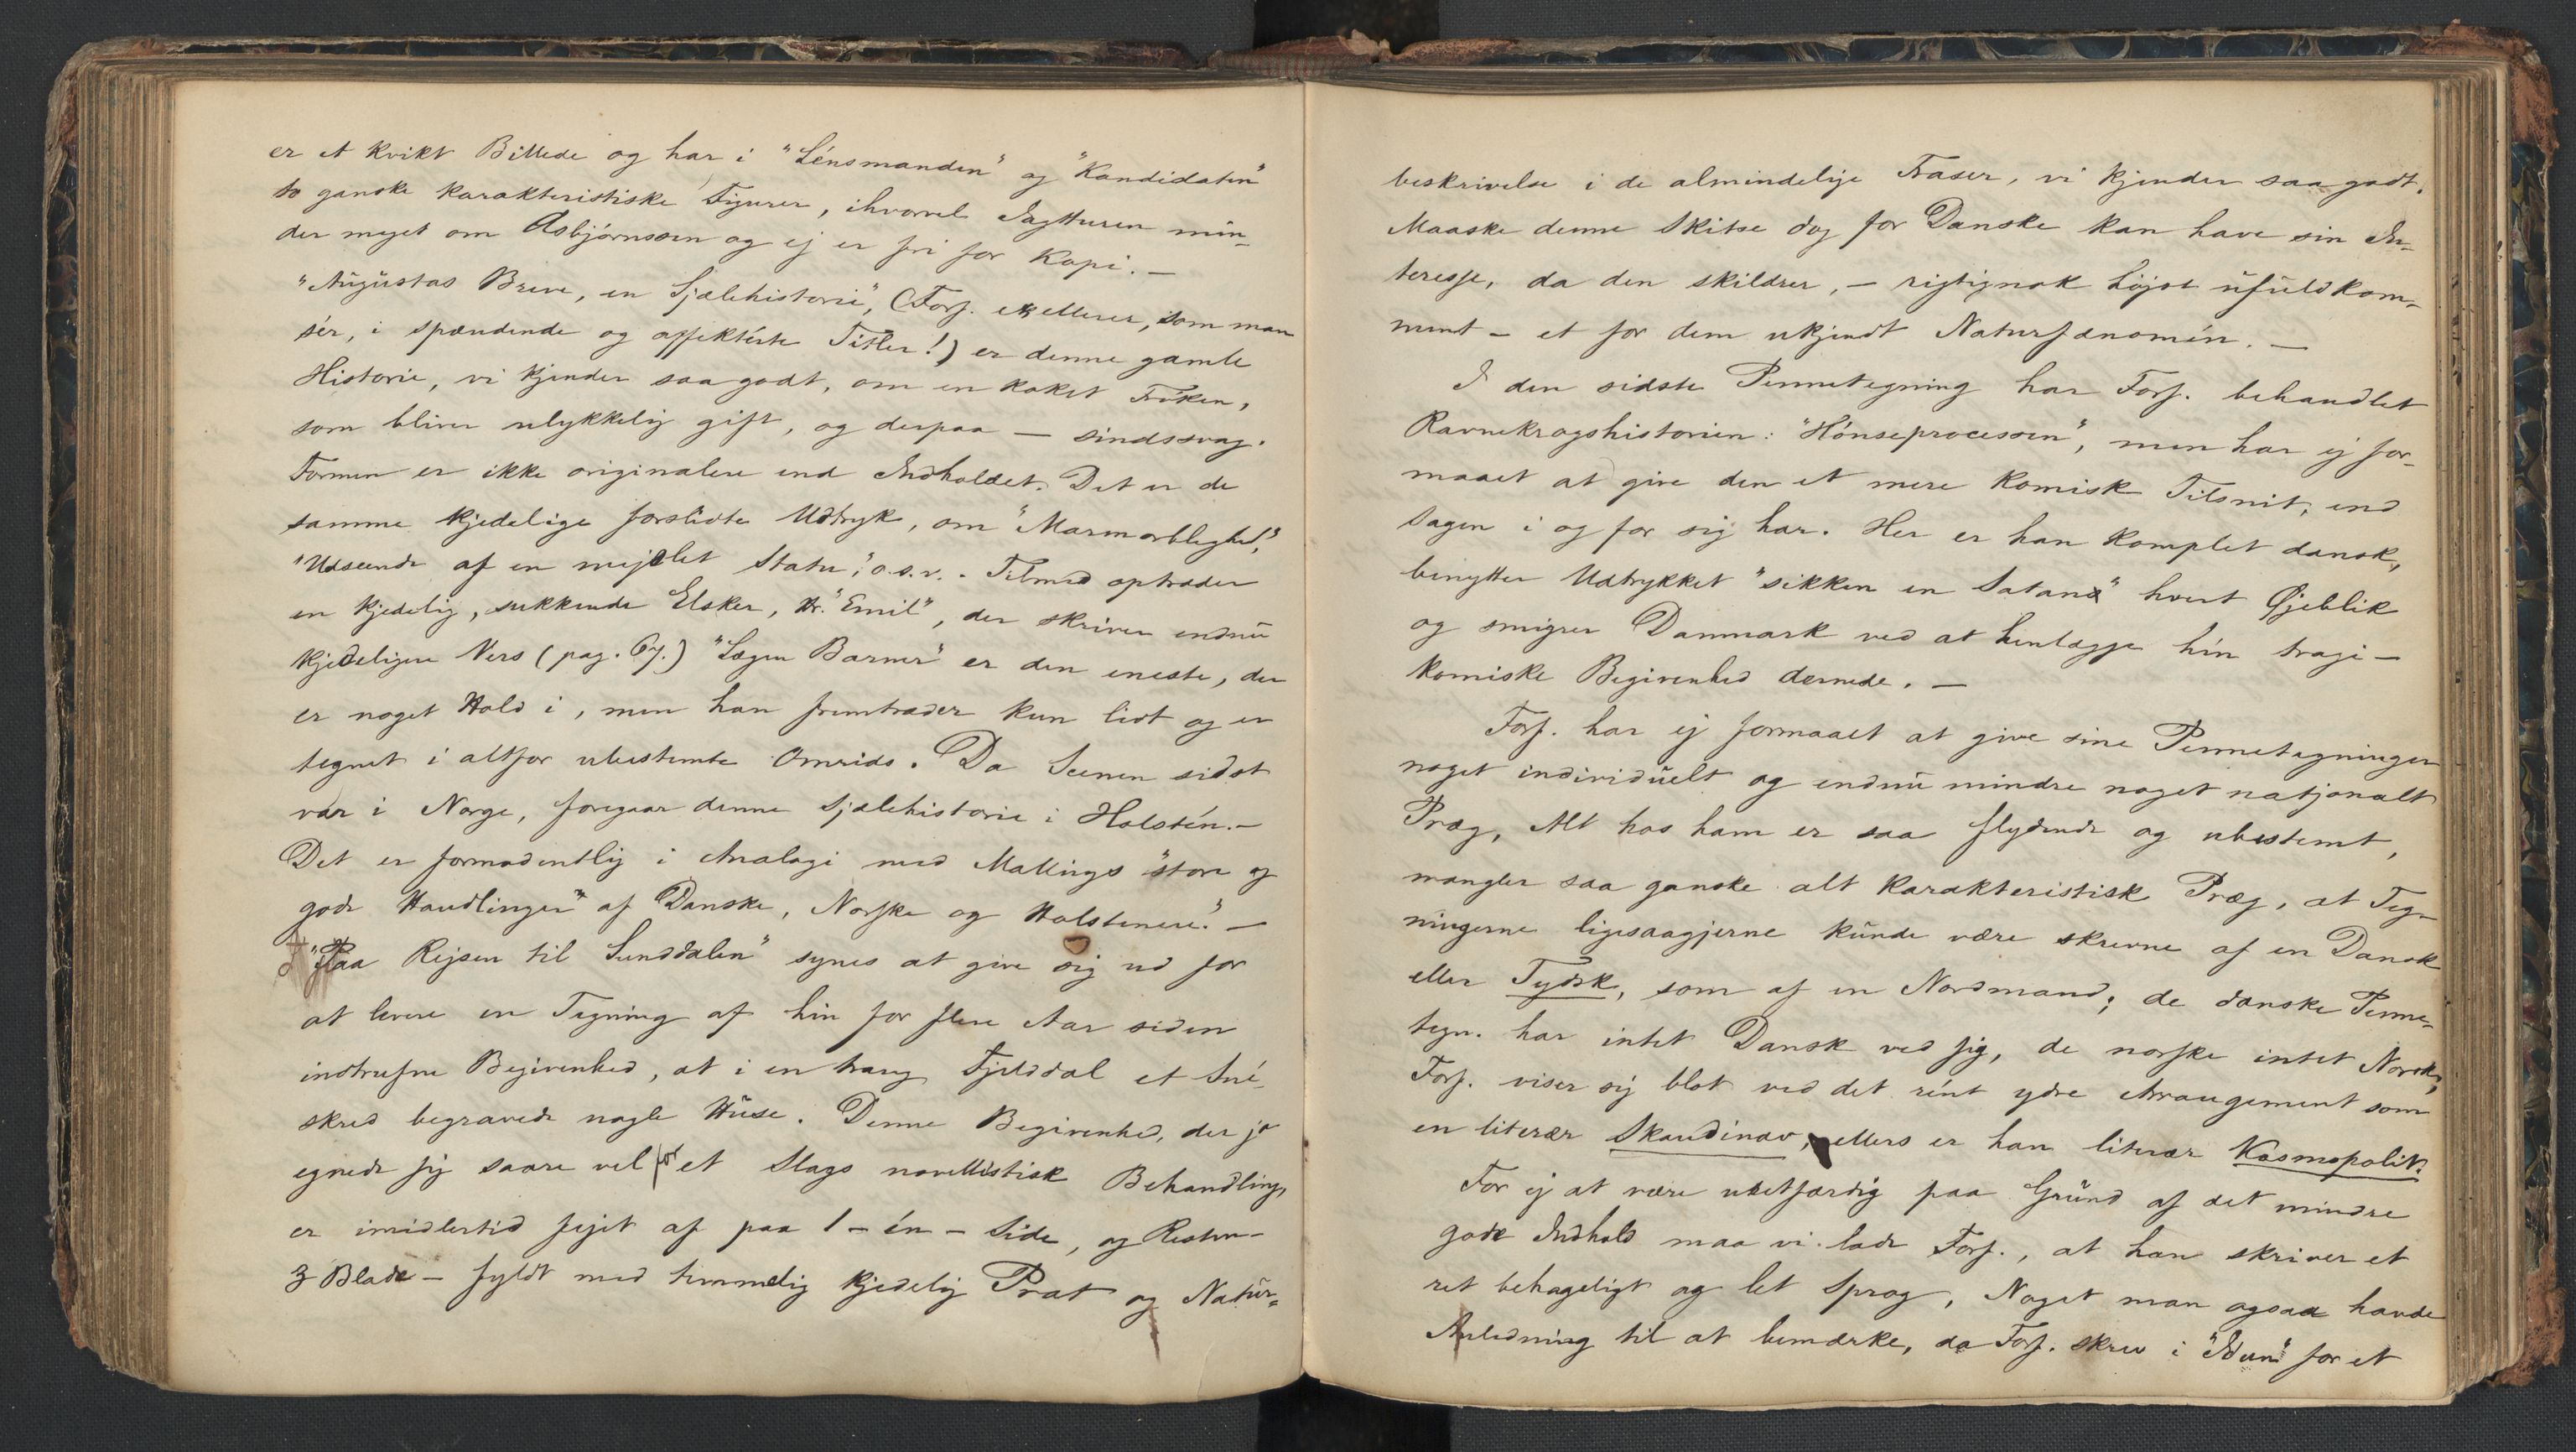 er et kvikt Billede og har i "Lénsmanden" og "Kandidaten"
to ganske karakteristiske Figurer, ihvorvel Jagtturen min-
der meget om Asbjørnssen og ej er fri for Kopi. —
"Augustas Breve, en Sjælehistorie", (Forf. exellerer, som man
sér, i spændende og affektérte Titler!) er denne gamle
Historie, vi kjender saa godt, om en koket Frøken,
som bliver ulykkelig gift, og derpaa — sindssvag.
Formen er ikke originalere end Indholdet. Det er de
samme kjedelige forslidte Udtryk, om "Marmorbleghed",
"Udseende af en mejslet Statue", o.s.v. Tilmed optræder
en kjedelig, sukkende Elsker, Hr. "Emil", der skriver endnu
kjedeligere Vers (pag. 67.) "Lægen Barner" er den eneste, der
er noget Hold i, men han fremtræder kun lidt og er
tegnet i altfor ubestemte Omrids. Da Scenen sidst
var i Norge, foregaar denne Sjælehistorie i Holstén. —
Det er formodentlig i Analogi med Mallings "store og
gode Handlinger" af Danske, Norske og Holstenere". —
"Paa Rejsen til Sunddalen" synes at give sig ud for
at levere en Tegning af hin for flere Aar siden
indtrufne Begivenhed, at i en trang Fjelddal et Sné-
skred begravede nogle Huse. Denne Begivenhed, der jo
egnede sig saare vel for et Slags novellistisk Behandling,
er imidlertid fejet af paa 1 - én - Side, og Resten -
3 Blade - fyldt med temmelig kjedelig Prat og Natur-
beskrivelse i de almindelige Fraser, vi kjender saa godt.
Maaske denne Skitse dog for Danske kan have sin In-
teresse, da den skildrer, — rigtignok højst ufuldkom-
ment — et for dem ukjendt Naturfænomén. —
I den sidste Pennetegning har Forf. behandlet
Ravnekrogshistorien: "Hønseprocessen", men har ej for-
maaet at give den et mere komisk Tilsnit, end
Sagen i og for sig har. Her er han komplet dansk,
benytter Udtrykket "sikken en Satans" hvert Øjeblik
og smigrer Danmark ved at henlægge hin tragi-
komiske Begivenhed dernede. —
Forf. har ej formaaet at give sine Pennetegninger
noget individuelt og endnu mindre noget natjonalt
Præg, Alt hos ham er saa flydende og ubestemt,
mangler saa ganske alt karakteristisk Præg, at Teg-
ningerne ligesaagjerne kunde være skrevne af en Dansk
eller Tydsk, som af en Nordmand; de danske Penne-
tegn. har intet Dansk ved sig, de norske intet Norsk;
Forf. viser sig blot ved det rént ydre Arrangement som
en literær Skandinav, ellers er han literær Kosmopolit.
For ej at være uretfærdig paa Grund af det mindre
gode Indhold maa vi lade Forf., at han skriver et
ret behageligt og let Sprog, Noget man ogsaa havde
Anledning til at bemærke, da Forf. skrev i "Idun" for et